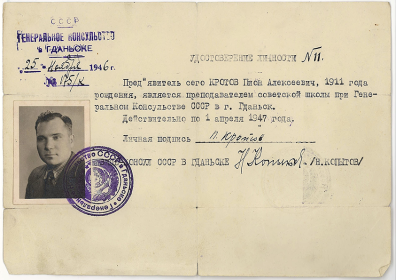 СССР
ГЕНЕРАЛЬНОЕ КОНСУЛЬСТВО
в ГДАНЬСКЕ
"25" ноября 1946 г.
№ 175/к
УДОСТОВЕРЕНИЕ ЛИЧНОСТИ №11.
Пред"явитель сего КРОТОВ Алексеевич, 1911 года
рождения, является преподавателем советской школы при Гене-
ральном Консульстве СССР в г. Гданьск.
Действительно по 1 апреля 1947 года.
Личная подпись П. Кротов
КОНСУЛ СССР В ГДАНЬСКЕ /В.КОПЫТОВ/